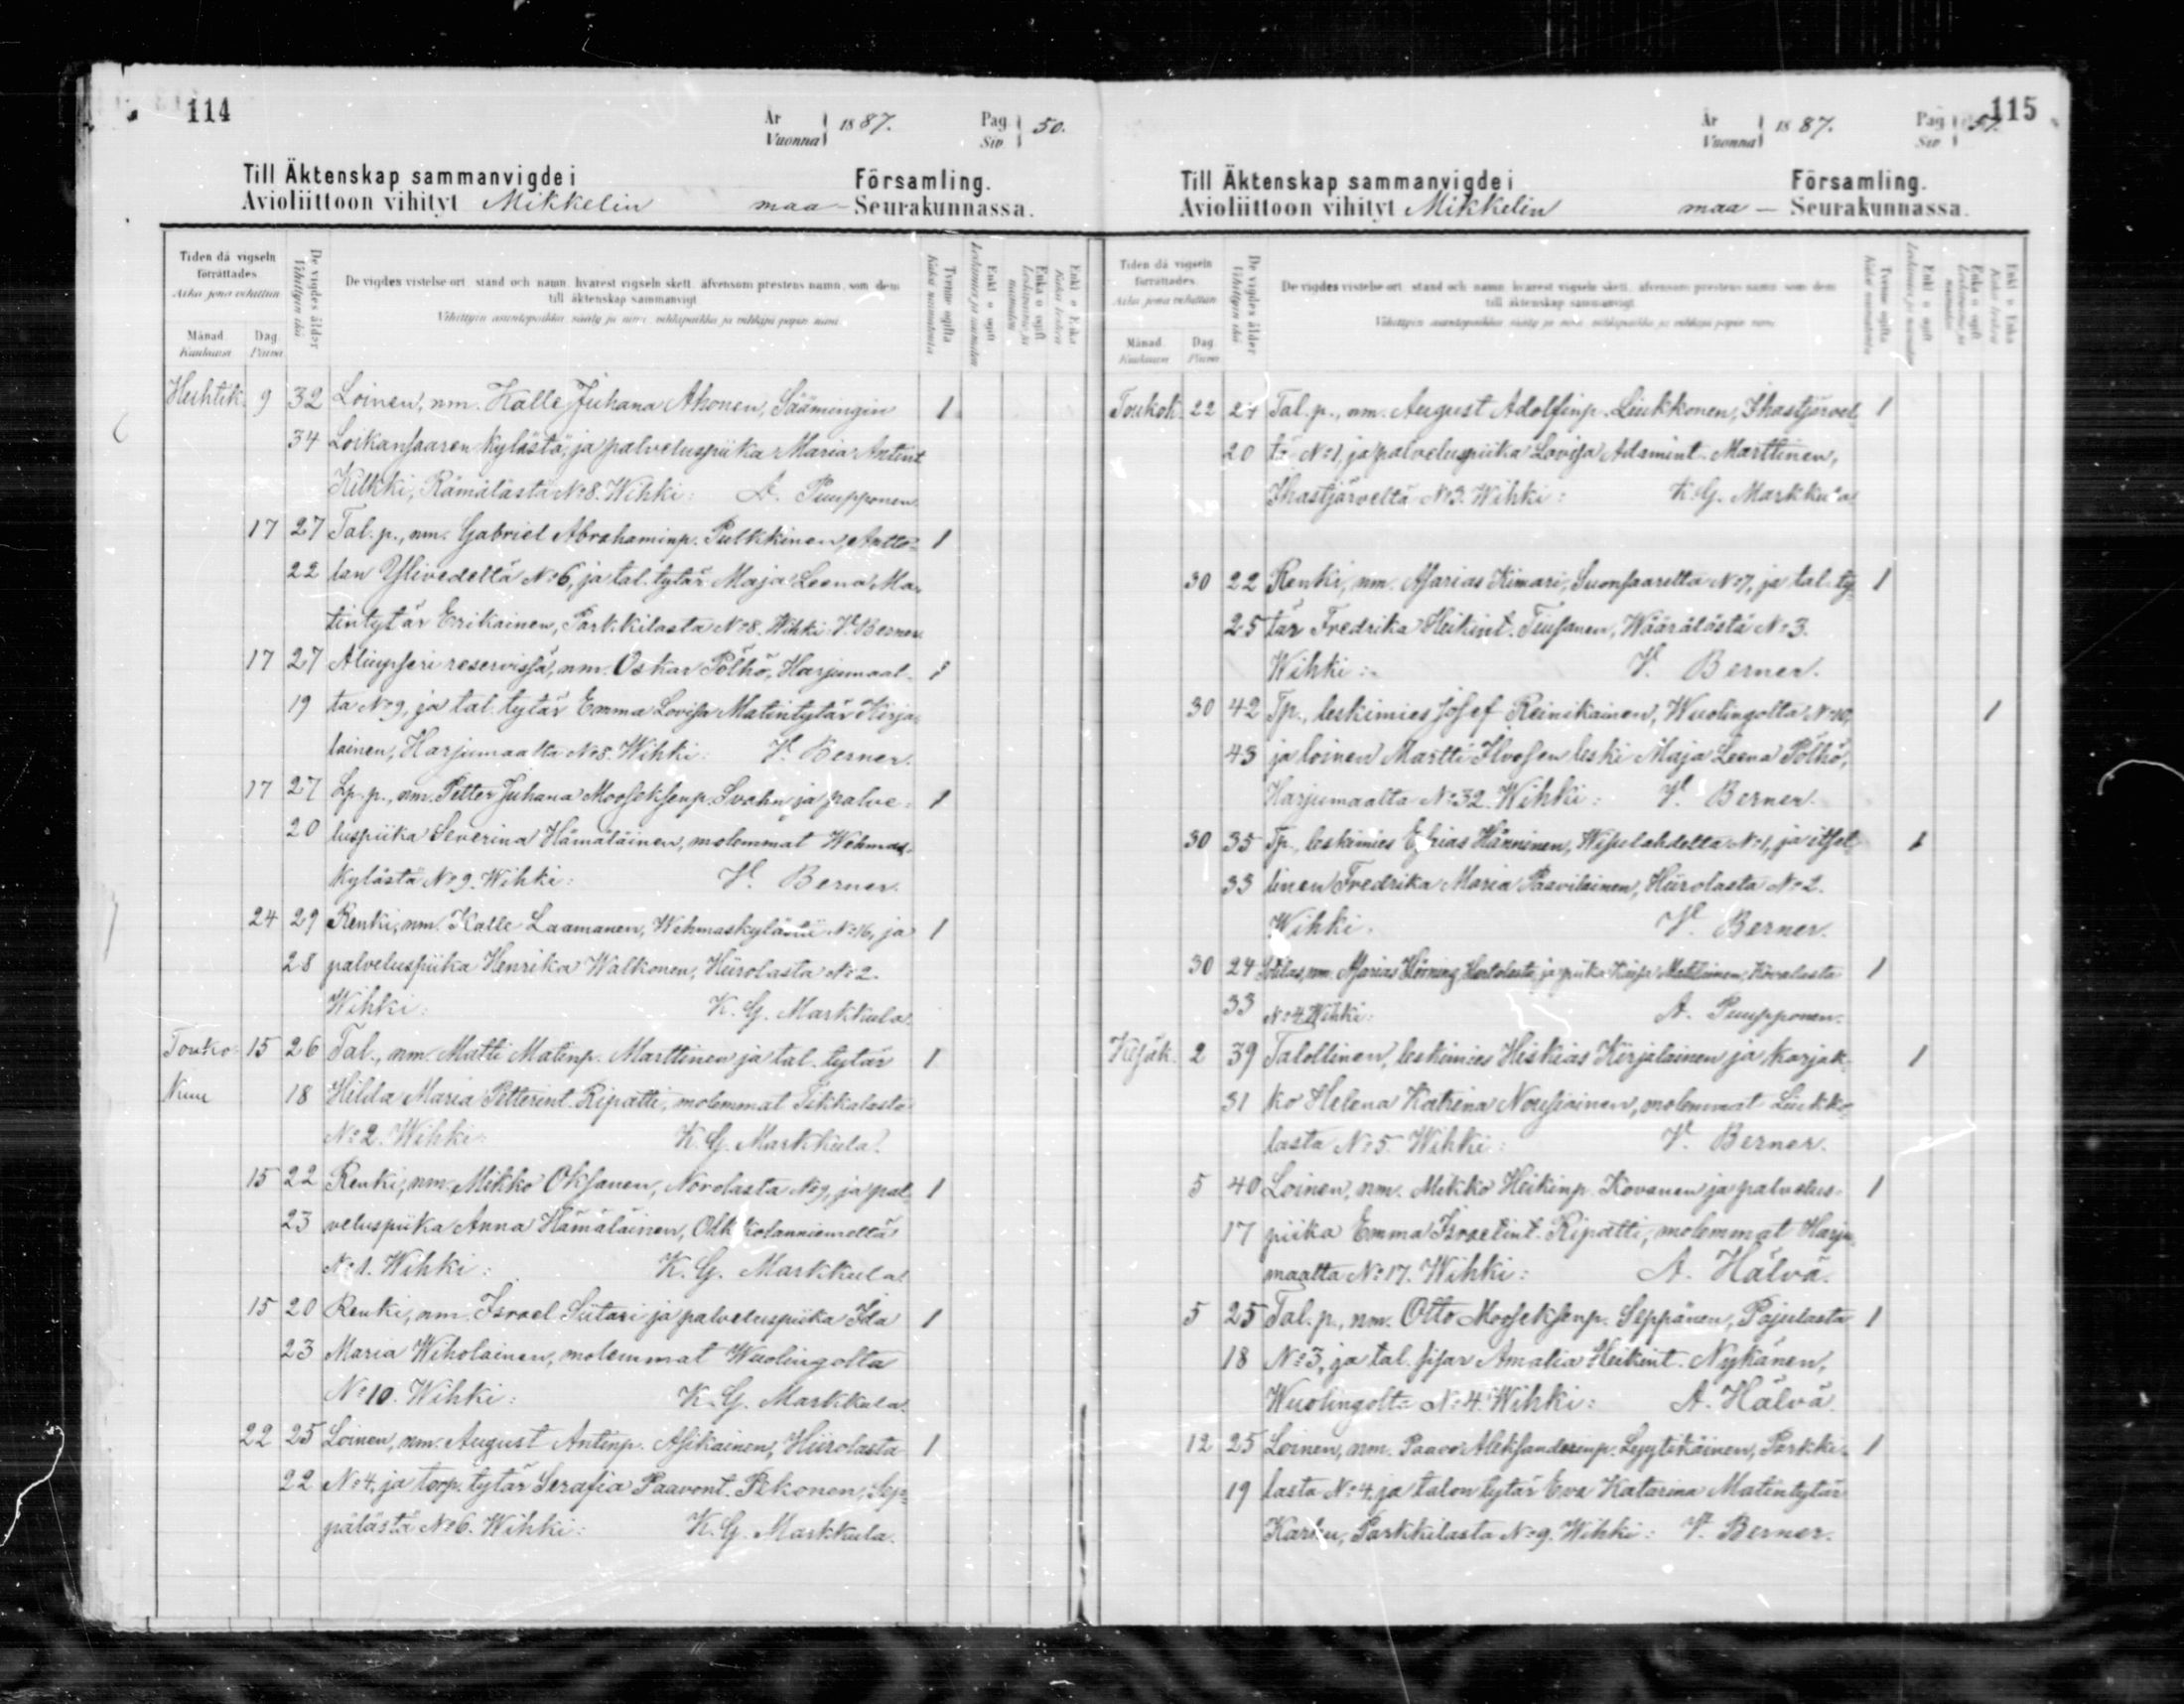 114
År
Vuonna 1887.
Pag
Siv 50.
Till Äktenskap sammanvigde i Församling.
Avioliittoon vihityt Mikkelin maa- Seurakunnassa.
Tiden då vigseln förrättades
Aika jona vihittiin
Månad Dag
Kuukausi Päivä
De vigdes ålder
Vihittyin ikä
De vigdes vistelse ort, stånd och namn, hvarest vigseln skett, äfvensom prestens namn, som dem
till äktenskap sammanvigt
Vihittyin asuntopaikka, sääty ja nimi, vihkipaikka ja vihkijä papin nimi
Tvenne ogifta
Kaksi naimatonta
Enkl. o ogift
Leskimies ja naimaton
Enka o ogift
Leskivaimo ja naimaton
Enkl. o Enka
Kaksi leskeä
Huhtik. 9 32 Loinen, nm. Kalle Juhana Ahonen, Säämingin 1
34 Loikansaaren kylästä, ja palveluspiika Maria Antint.
Kilkki, Rämälästä No 8. Wihki: A. Puupponen.
17 27 Tal. p., nm. Gabriel Abrahaminp. Pulkkinen, Antto- 1
22 lan Ylivedeltä No 6, ja tal. tytär Maja Leena Ma-
tintytär Erikäinen, Parkkilasta No 8. Wihki: V. Berner.
17 27 Aliupseri reservissä, nm. Oskar Pölhö, Harjumaal- 1
19 ta No 9, ja tal. tytär Emma Lovisa Matintytär Kirja-
lainen, Harjumaalta No 5. Wihki: V. Berner.
17 27 Lp. p., nm. Petter Juhana Mooseksenp. Svahn ja palve- 1
20 luspiika Severina Hämäläinen, molemmat Wehmas-
kylästä No 9. Wihki: V. Berner.
24 29 Renki, nm. Kalle Laamanen, Wehmaskylästä No 16, ja 1
28 palveluspiika Henrika Walkonen, Hiirolasta No 2.
Wihki: K. G. Markkula.
Touko- 15 26 Tal., nm. Matti Matinp. Marttinen ja tal. tytär 1
kuu 18 Hilda Maria Petterint. Ripatti, molemmat Tikkalasta
No 2. Wihki: K. G. Markkula.
15 22 Renki, nm. Mikko Oksanen, Norolasta No 9, ja pal- 1
23 veluspiika Anna Hämäläinen, Olkkolanniemeltä
No 1. Wihki: K. G. Markkula.
15 20 Renki, nm. Israel Siitari ja palveluspiika Ida 1
23 Maria Wiholainen, molemmat Wuolingolta
No 10. Wihki: K. G. Markkula.
22 25 Loinen, nm. August Antinp. Asikainen, Hiirolasta 1
22 No 4, ja torp. tytär Serafia Paavont. Pekonen, Sep-
pälästä No 6. Wihki: K. G. Markkula.
115
År
Vuonna 1887.
Pag
Siv 51.
Till Äktenskap sammanvigde i Församling.
Avioliittoon vihityt Mikkelin maa- Seurakunnassa.
Tiden då vigseln förrättades.
Aika jona vihittiin
Månad. Dag.
Kuukausi Päivä
De vigdes ålder
Vihittyin ikä
De vigdes vistelse ort, stånd och namn, hvarest vigseln skett, äfvensom prestens namn, som dem
till äktenskap sammanvigt
Vihittyin asuntopaikka, sääty ja nimi, vihkipaikka ja vihkijä papin nimi
Tvenne ogifta
Kaksi naimatonta
Enkl. o ogift
Leskimies ja naimaton
Enka o ogift
Leskivaimo ja naimaton
Enkl. o Enka
Kaksi leskeä
Toukok. 22 24 Tal. p., nm. August Adolfinp. Liukkonen, Ihastjärvel- 1
20 tä No 1, ja palveluspiika Lovisa Adamint. Marttinen,
Ihastjärveltä No 3. Wihki: K. G. Markkula.
30 22 Renki, nm. Asarias Kimari, Suonsaarelta No 7, ja tal. ty- 1
25 tär Fredrika Heikint. Tiusanen, Wäärälästä No 3.
Wihki: V. Berner.
30 42 Tp., leskimies Josef Reinikainen, Wuolingolta No 10, 1
43 ja loinen Martti Ilvosen leski Maja Leena Pölhö,
Harjumaalta No 32. Wihki: V. Berner.
30 35 Tp., leskimies Esrias Hänninen, Wisulahdelta No 1, ja itsel- 1
33 linen Fredrika Maria Paavilainen, Hiirolasta No 2.
Wihki: V. Berner.
30 24 Sotilas, nm. Asarias Hörning, ja piika Kaisa 1
33 No 4. Wihki: A. Puupponen.
Kesäk. 2 39 Talollinen, leskimies Hiskias Kirjalainen ja karjak- 1
31 ko Helena Katrina Nousiainen, molemmat Liukko-
lasta No 5. Wihki: V. Berner.
5 40 Loinen, nm. Mikko Heikinp. Kovanen ja palvelus- 1
17 piika Emma Israelint. Ripatti, molemmat Harju-
maalta No 17. Wihki: A. Hälvä.
5 25 Tal. p., nm. Otto Mooseksenp. Seppänen, Pajulasta 1
18 No 3, ja tal. sisar Amalia Heikint. Nykänen,
Wuolingolta No 4. Wihki: A. Hälvä.
12 25 Loinen, nm. Paavo Aleksanderinp. Lyytikäinen, Parkki- 1
19 lasta No 4, ja talon tytär Eva Katarina Matintytär
Karhu, Parkkilasta No 9. Wihki: V. Berner.